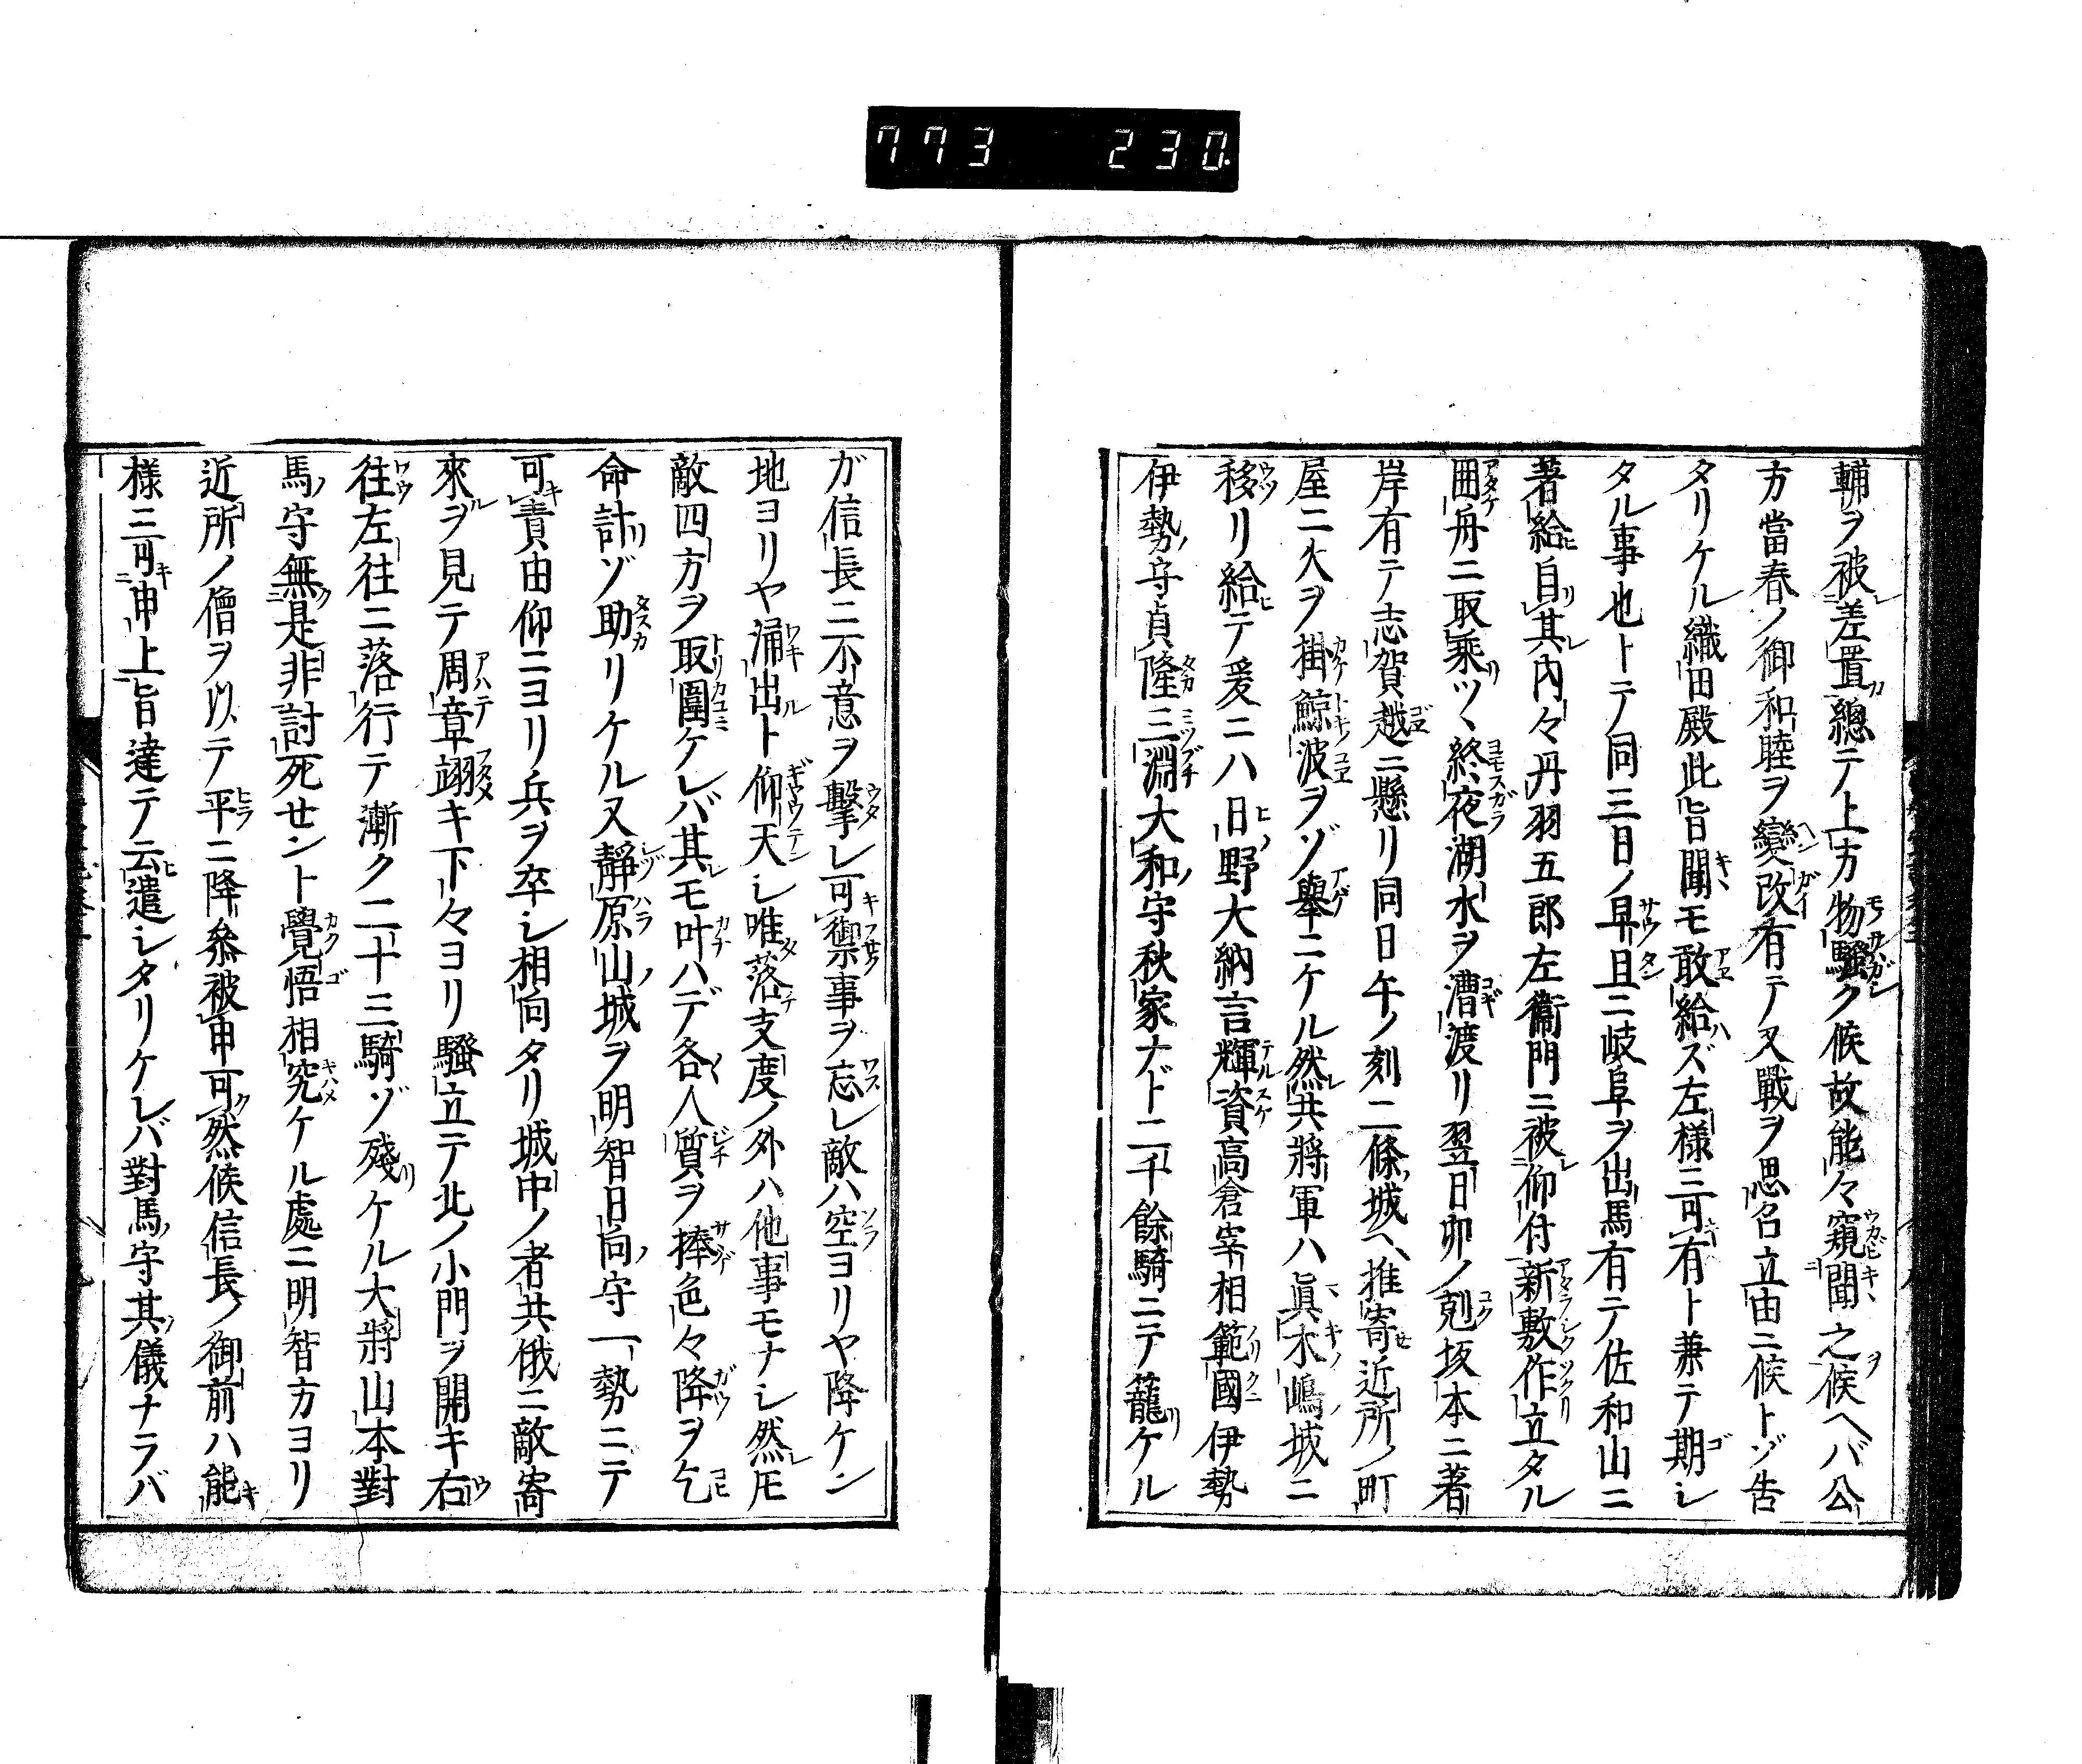 773 230
輔ヲ被差置總テ上方物騷ク候故能々窺聞之候ヘバ公
方當春ノ御和睦ヲ變改有テ又戰ヲ思召立由ニ候トゾ告
タリケル織田殿此旨聞モ敢給ズ左樣ニ可有ト兼テ期シ
タル事也トテ同三日ノ早旦ニ岐阜ヲ出馬有テ佐和山ニ
著給自其内々丹羽五郎左衞門ニ被仰付新敷作立タル
囲舟ニ取乘ツヽ終夜湖水ヲ漕渡リ翌日卯ノ剋坂本ニ著
岸有テ志賀越ニ懸リ同日午ノ刻二條城ヘ推寄近所ノ町
屋ニ火ヲ掛鯨波ヲゾ擧ニケル然共將軍ハ眞木嶋城ニ
移リ給テ爰ニハ日野大納言輝資高倉宰相範國伊勢
伊勢守貞隆三淵大和守秋家ナド二千餘騎ニテ籠ケル
ガ信長ニ不意ヲ擊レ可禦事ヲ忘レ敵ハ空ヨリヤ降ケン
地ヨリヤ涌出ト仰天シ唯落支度ノ外ハ他事モナシ然𪜈
敵四方ヲ取圍ケレバ其モ叶ハデ各人質ヲ捧色々降ヲ乞
命計ゾ助リケル又靜原山城ヲ明智日向守一勢ニテ
可責由仰ニヨリ兵ヲ卒シ相向タリ城中ノ者共俄ニ敵寄
來ヲ見テ周章翊キ下々ヨリ騷立テ北ノ小門ヲ開キ右
往左往ニ落行テ漸ク二十三騎ゾ殘ケル大將山本對
馬守無是非討死セント覺悟相究ケル處ニ明智方ヨリ
近所ノ僧ヲ以テ平ニ降參被申可然候信長ノ御前ハ能
樣ニ可申上旨達テ云遣シタリケレバ對馬守其儀ナラバ